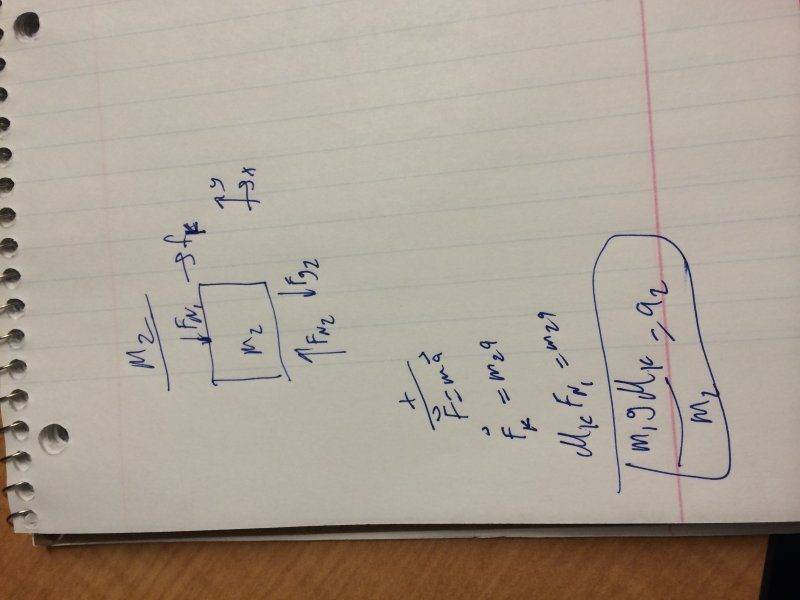 M2
↓FN1 → fk
↑y →x
m2
↑FN2 ↓Fg2
x
F⃗=ma⃗
f⃗k = m2a
μk FN1 = m2a
m1gμk / m2 = a2